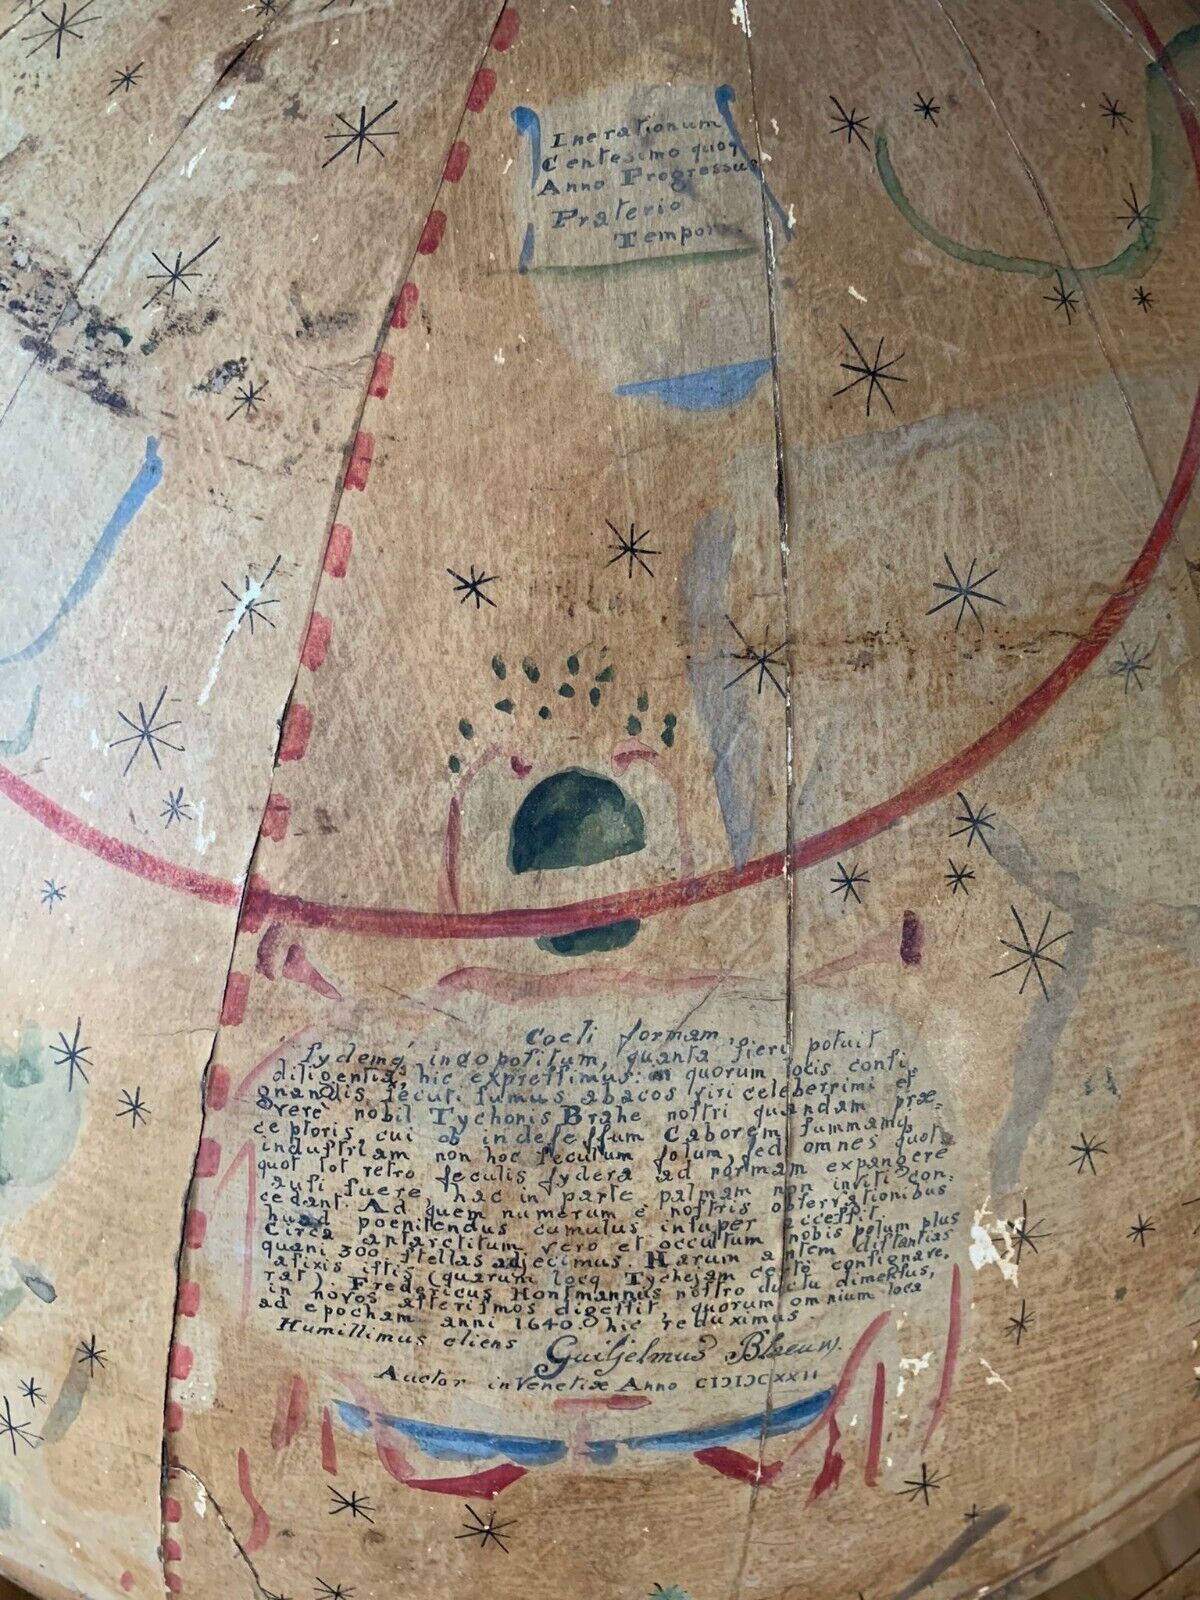 Inerationum
Centesimo quoq
Anno Progressus
Praterio
Tempori
Coeli formam,
sydemq́ indopositum, quanta fieri potuit
diligentia, hic expressimus: in quorum locis consi-
gnandis secuti sumus abacos viri celeberrimi et
vere nobil Tychonis Brahe nostri quandam præ-
ceptoris, cui ob indefessum Caborem summamq
industriam non hoc seculum solum, sed omnes quot-
quot tot retro seculis sydera ad normam expangere
ausi fuere, hac in parte palmam non inviti con-
cedant. Ad quem numerum è nostris observationibus
haud poenitendus cumulus insuper accessit.
Circa antarctitum vero et occultum nobis polum plus
quam 300 stellas adjecimus. Harum antem distantias
afixis istis (quarum locq Tychejam certè consignare,
rat). Fredericus Hontmannus nostro ductu dimensus,
in novos asterismos digessit, quorum omnium loca
ad epocham anni 1640. hic reduximus.
Humillimus cliens Guiljelmus Blaeuw.
Auctor in Venetiæ Anno CIↃIↃCXXII